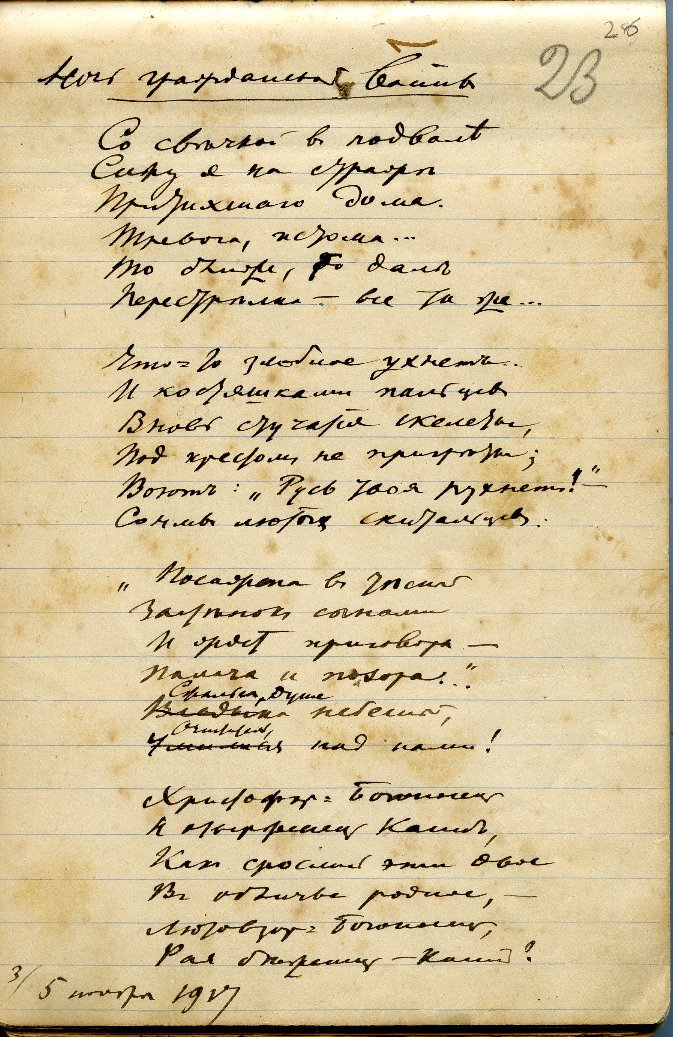 26
23
Ночь гражданской войны
Со свѣчкой въ подвалѣ
Сижу я на стражѣ
Притихшаго дома.
Тревога, истома...
То ближе, то далѣ
Перестрѣлка – все та же...
Что-то злобное ухнетъ..
И костяшками пальцевъ
Вновь стучатся скелеты,
Под крестомъ не пригрѣты;
Воютъ: „Русь твоя рухнетъ!" –
Сонмы лютыхъ скитальцевъ.
„Посаяжена въ тѣсной
Застѣнокъ сынами
И ждетъ приговора –
Палача и позора.."
Сжалься, Душе
небесной,
надъ нами!
Христофоръ-Богоносецъ
И отверженецъ Каинъ,
Какъ срослись эти двое
Въ обличье родное, –
Богоносецъ,
Рая – Каинъ?
3/5 ноября 1917